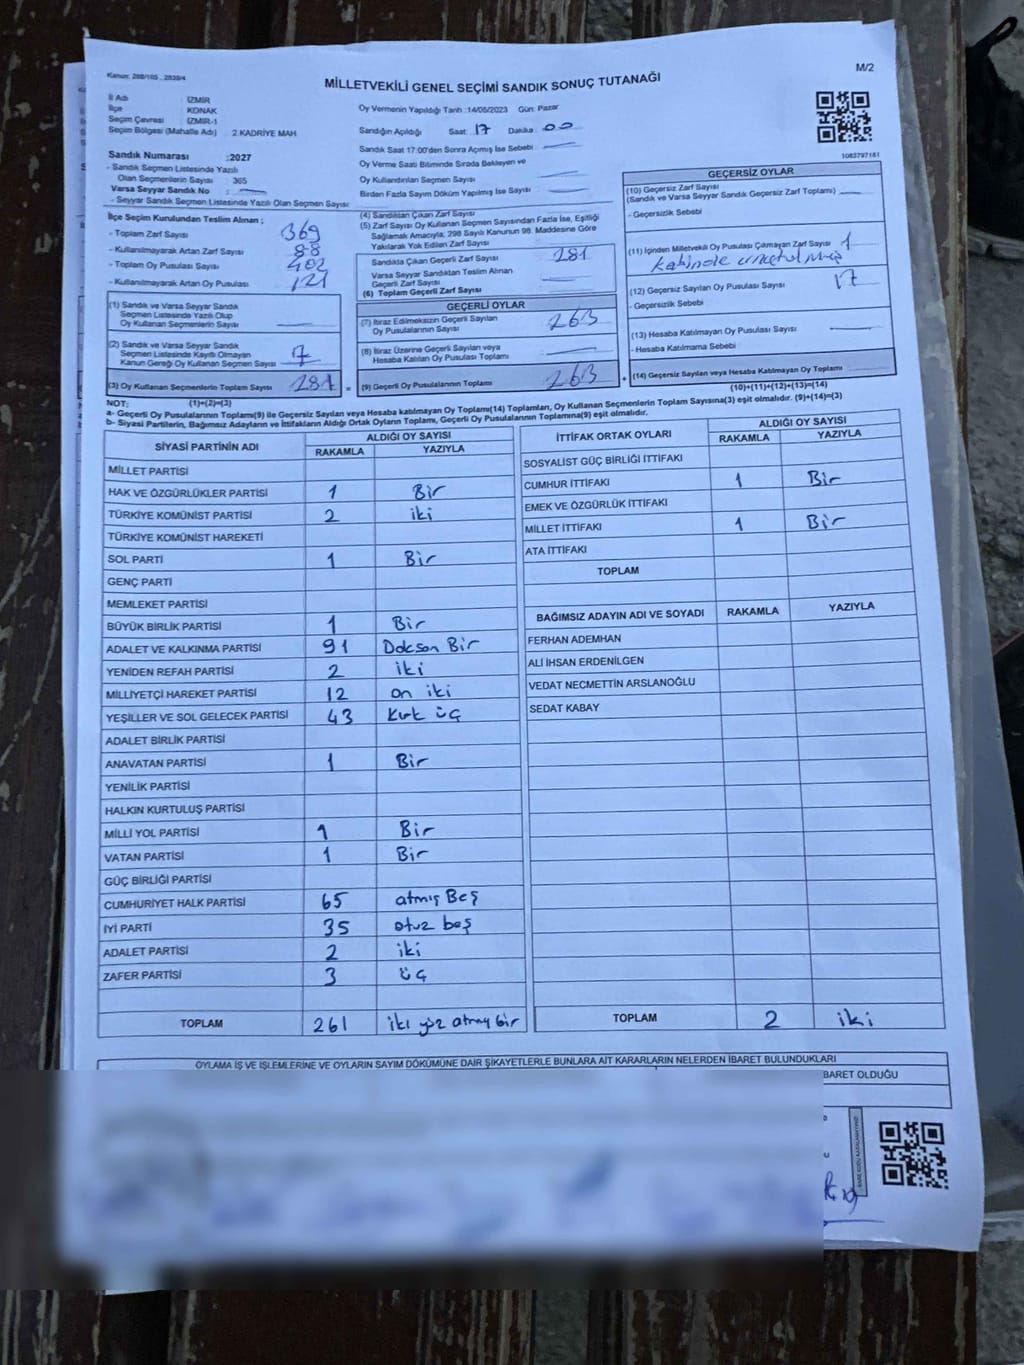 Kanun: 298/105 , 2839/4
M/2
MİLLETVEKİLİ GENEL SEÇİMİ SANDIK SONUÇ TUTANAĞI
İl Adı : İZMİR
İlçe : KONAK
Seçim Çevresi : İZMİR-1
Seçim Bölgesi (Mahalle Adı) : 2.KADRİYE MAH
Sandık Numarası :2027
- Sandık Seçmen Listesinde Yazılı
Olan Seçmenlerin Sayısı : 365
Varsa Seyyar Sandık No :
- Seyyar Seçmen Listesinde Yazılı Olan Seçmen Sayısı:
Oy Vermenin Yapıldığı Tarih :14/05/2023 Gün: Pazar
Sandığın Açıldığı Saat: 17 Dakika: 00
Sandık Saat 17:00'den Sonra Açımış İse Sebebi :
Oy Verme Saati Bitiminde Sırada Bekleyen ve
Oy Kullandırılan Seçmen Sayısı :
Birden Fazla Sayım Döküm Yapılmış İse Sayısı :
1083797181
İlçe Seçim Kurulundan Teslim Alınan ;
- Toplam Zarf Sayısı : 369
- Kullanılmayarak Artan Zarf Sayısı : 88
- Toplam Oy Pusulası Sayısı : 402
- Kullanılmayarak Artan Oy Pusulası : 121
(1) Sandık ve Varsa Seyyar Sandık
Seçmen Listesinde Yazılı Olup
Oy Kullanan Seçmenlerin Sayısı :
(2) Sandık ve Varsa Seyyar Sandık
Seçmen Listesinde Kayıtlı Olmayan
Kanun Gereği Oy Kullanan Seçmen Sayısı : 7
(3) Oy Kullanan Seçmenlerin Toplam Sayısı : 281
(1)+(2)=(3)
(4) Sandıktan Çıkan Zarf Sayısı :
(5) Zarf Sayısı Oy Kullanan Seçmen Sayısından Fazla İse, Eşitliği
Sağlamak Amacıyla; 298 Sayılı Kanunun 98. Maddesine Göre
Yakılarak Yok Edilen Zarf Sayısı :
Sandıkta Çıkan Geçerli Zarf Sayısı : 281
Varsa Seyyar Sandıktan Teslim Alınan
Geçerli Zarf Sayısı :
(6) Toplam Geçerli Zarf Sayısı :
GEÇERLİ OYLAR
(7) İtiraz Edilmeksizin Geçerli Sayılan
Oy Pusulalarının Sayısı : 263
(8) İtiraz Üzerine Geçerli Sayılan veya
Hesaba Katılan Oy Pusulası Toplamı :
(9) Geçerli Oy Pusulalarının Toplamı : 263
GEÇERSİZ OYLAR
(10) Geçersiz Zarf Sayısı
(Sandık ve Varsa Seyyar Sandık Geçersiz Zarf Toplamı) :
- Geçersizlik Sebebi
(11) İçinden Milletvekili Oy Pusulası Çıkmayan Zarf Sayısı : 1
Kabinde unutulmuş
(12) Geçersiz Sayılan Oy Pusulası Sayısı : 17
- Geçersizlik Sebebi
(13) Hesaba Katılmayan Oy Pusulası Sayısı :
- Hesaba Katılmama Sebebi
(14) Geçersiz Sayılan veya Hesaba Katılmayan Oy Toplamı :
(10)+(11)+(12)+(13)=(14)
NOT:
a- Geçerli Oy Pusulalarının Toplamı(9) ile Geçersiz Sayılan veya Hesaba katılmayan Oy Toplamı(14) Toplamları, Oy Kullanan Seçmenlerin Toplam Sayısına(3) eşit olmalıdır. (9)+(14)=(3)
b- Siyasi Partilerin, Bağımsız Adayların ve İttifakların Aldığı Oyların Toplamı, Geçerli Oy Pusulalarının Toplamına(9) eşit olmalıdır.
SİYASİ PARTİNİN ADI ALDIĞI OY SAYISI
RAKAMLA YAZIYLA
MİLLET PARTİSİ
HAK VE ÖZGÜRLÜKLER PARTİSİ 1 Bir
TÜRKİYE KOMÜNİST PARTİSİ 2 iki
TÜRKİYE KOMÜNİST HAREKETİ
SOL PARTİ 1 Bir
GENÇ PARTİ
MEMLEKET PARTİSİ
BÜYÜK BİRLİK PARTİSİ 1 Bir
ADALET VE KALKINMA PARTİSİ 91 Doksan Bir
YENİDEN REFAH PARTİSİ 2 iki
MİLLİYETÇİ HAREKET PARTİSİ 12 on iki
YEŞİLLER VE SOL GELECEK PARTİSİ 43 kırk üç
ADALET BİRLİK PARTİSİ
ANAVATAN PARTİSİ 1 Bir
YENİLİK PARTİSİ
HALKIN KURTULUŞ PARTİSİ
MİLLİ YOL PARTİSİ 1 Bir
VATAN PARTİSİ 1 Bir
GÜÇ BİRLİĞİ PARTİSİ
CUMHURİYET HALK PARTİSİ 65 atmış Beş
İYİ PARTİ 35 otuz beş
ADALET PARTİSİ 2 iki
ZAFER PARTİSİ 3 üç
TOPLAM 261 iki yüz atmış bir
İTTİFAK ORTAK OYLARI ALDIĞI OY SAYISI
RAKAMLA YAZIYLA
SOSYALİST GÜÇ BİRLİĞİ İTTİFAKI
CUMHUR İTTİFAKI 1 Bir
EMEK VE ÖZGÜRLÜK İTTİFAKI
MİLLET İTTİFAKI 1 Bir
ATA İTTİFAKI
TOPLAM
BAĞIMSIZ ADAYIN ADI VE SOYADI RAKAMLA YAZIYLA
FERHAN ADEMHAN
ALİ İHSAN ERDENİLGEN
VEDAT NECMETTİN ARSLANOĞLU
SEDAT KABAY
TOPLAM 2 iki
OYLAMA İŞ VE İŞLEMLERİNE VE OYLARIN SAYIM DÖKÜMÜNE DAİR ŞİKAYETLERLE BUNLARA AİT KARARLARIN NELERDEN İBARET BULUNDUKLARI
BARET OLDUĞU